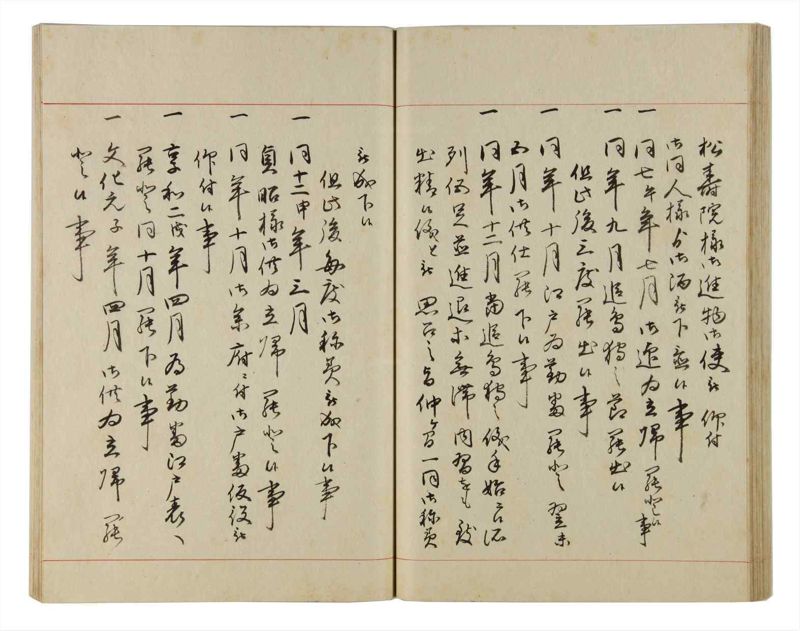 松壽院様御進物御使被 仰付
御同人様ゟ御酒被下置候事
一 同七午年七月御迎為立帰罷登候事
一 同年九月追鳥狩之節罷出候
但此後三度罷出候事
一 同年十月江戸為勤番罷登翌未
五月御供仕罷下候事
一 同年十二月当追鳥狩之儀手始之
列伍足並進退等無滞内習をも致
出精候儀と被 思召之旨仲ヶ間一同御称美
被成下候
但此後毎度御称美被成下候事
一 同十二申年三月
貞昭様御供為立帰罷登候事
一 同年十月御参府ニ付御戸番仮役被
仰付候事
一 享和二戌年四月為勤番江戸表へ
罷登同十月罷下候事
一 文化元子年四月御供為立帰罷
登候事